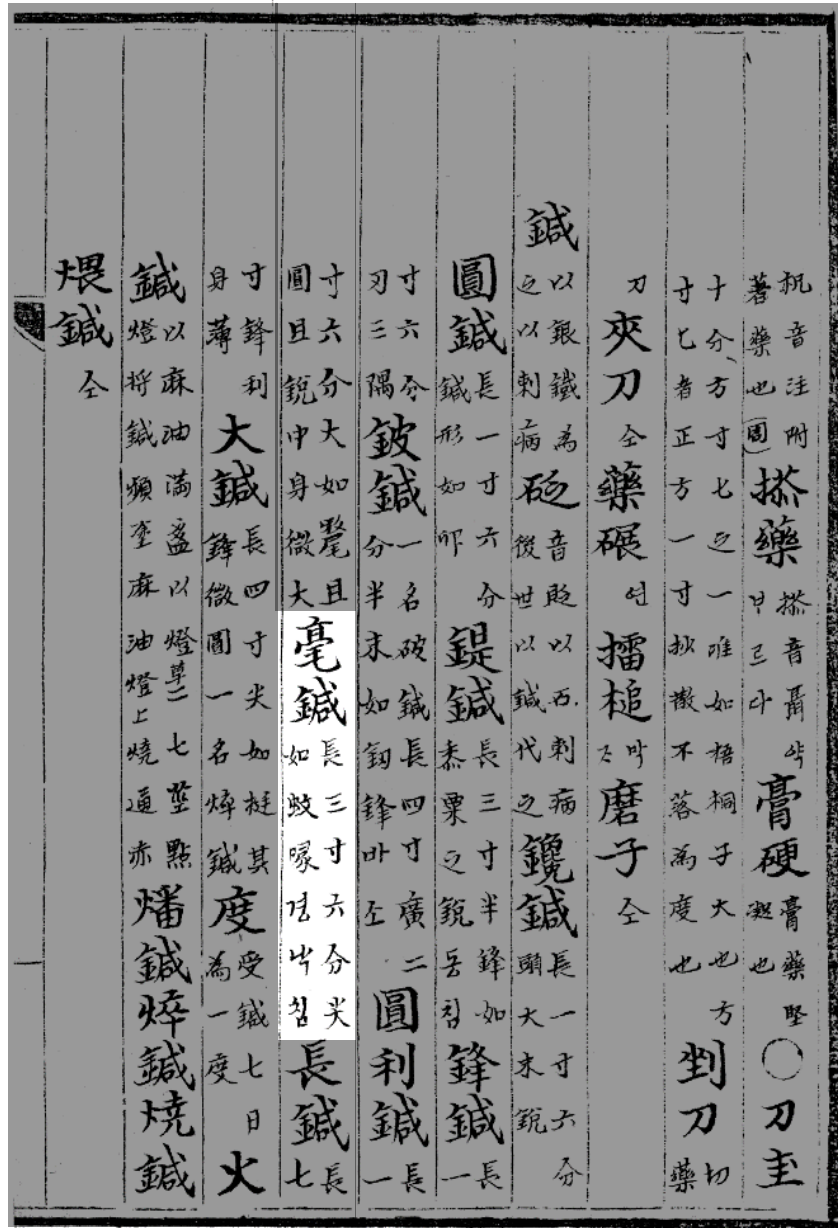 音注附着藥也 搽藥 搽音약ᄇᆞᄅᆞ다 膏硬 膏藥堅凝也 ○ 刀圭
十分方寸匕之一唯如梧桐子大也方寸匕者正方一寸抄散不落為度也 剉刀 切藥
刀 夾刀 仝 藥碾 연 擂槌 막 磨子 仝
鍼 以銀鐵為之以刺病 砭 音貶以石刺病後世以鍼代之 鑱鍼 長一寸六分頭大末銳
圓鍼 長一寸六分鍼形如卵 鍉鍼 長三寸半鋒如黍粟之銳동침 鋒鍼 長一
寸六分刃三隅 鈹鍼 一名破鍼長四寸廣二分半末如釼鋒바소 圓利鍼 長一
寸六分大如氂且圓且銳中身微大 毫鍼 長三寸六分尖如蚊喙경낙침 長鍼 長七
寸鋒利身薄 大鍼 長四寸尖如挺其鋒微圓一名焠鍼 度 受鍼七日為一度 火
鍼 以麻油滿盞以燈草二七莖點燈將鍼頻塗麻油燈上燒通赤 燔鍼焠鍼燒鍼
煨鍼 仝